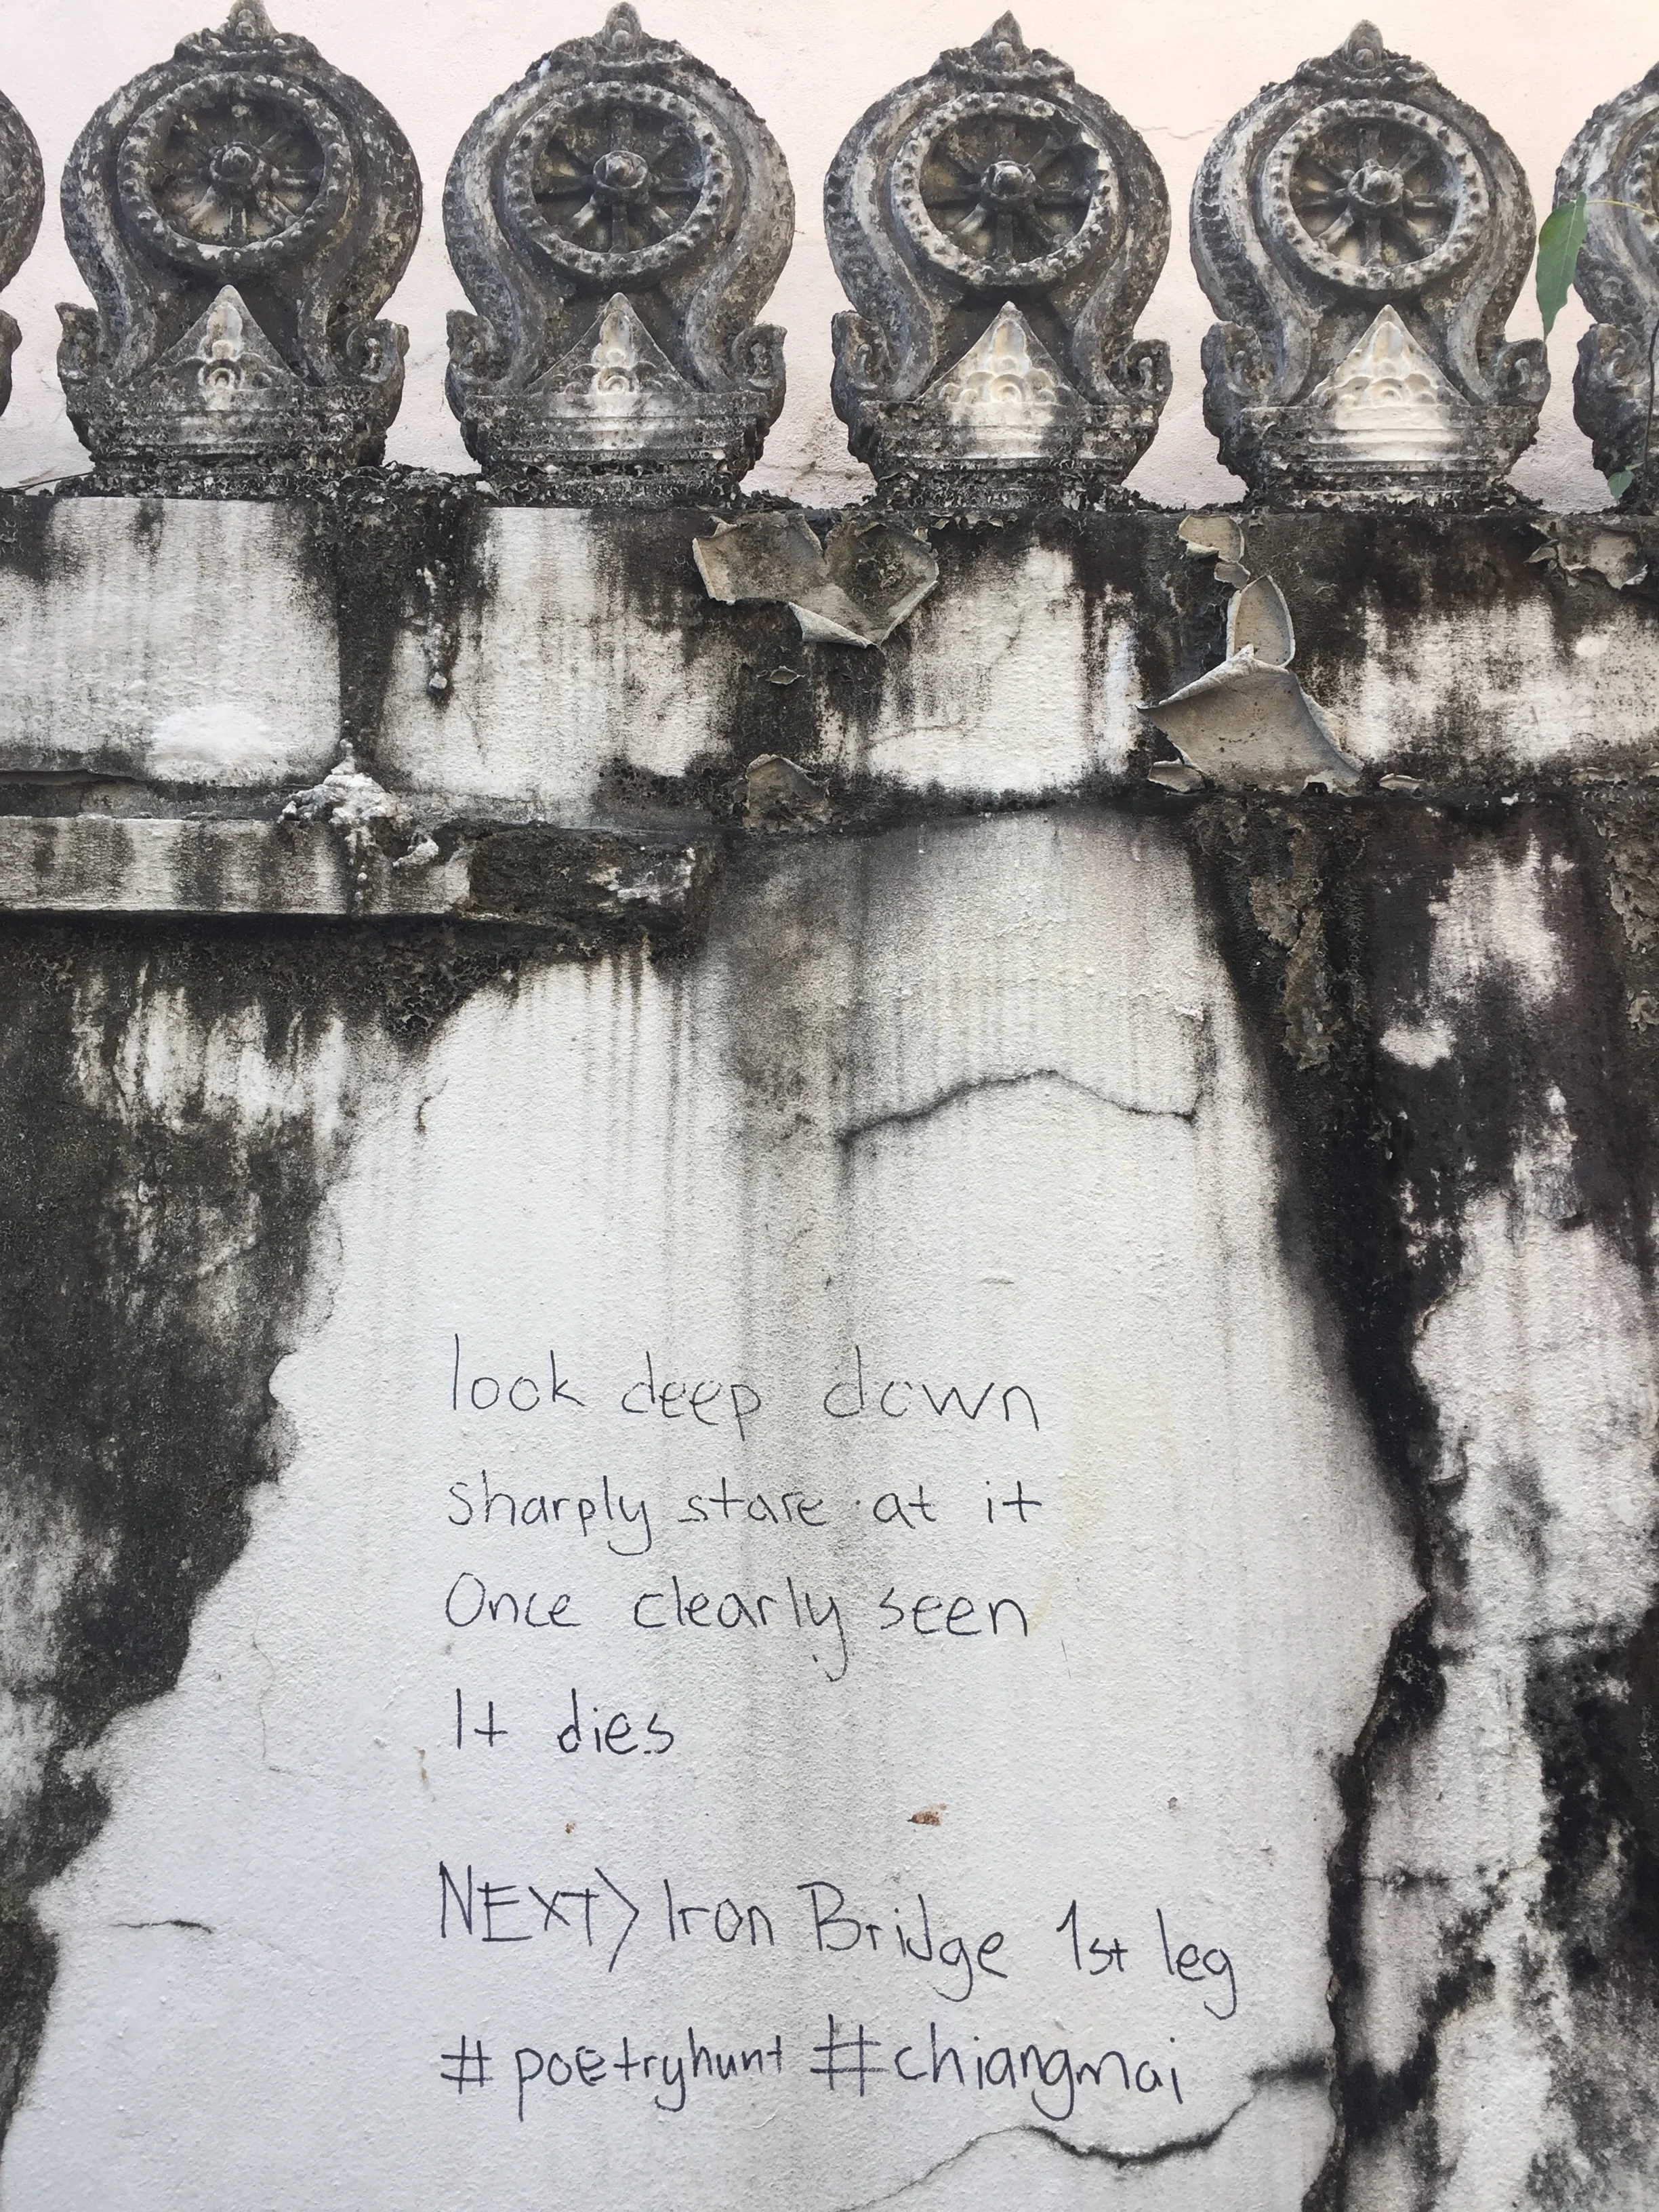 look deep down
sharply stare at it
Once clearly seen
It dies
NEXT> Iron Bridge 1st leg
#poetryhunt #chiangmai